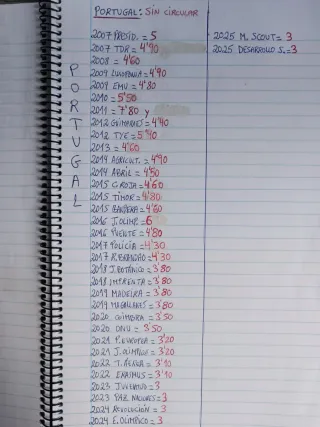 PORTUGAL: SIN CIRCULAR
PORTUGAL
2007 PRESID. = 5
2007 TDR = 4'90
2008 = 4'60
2009 LUSOFONIA = 4'90
2009 EMU = 4'80
2010 = 5'50
2011 = 7'80 y
2012 GUIMARAES = 4'40
2012 TYE = 5'40
2013 = 4'60
2014 AGRICULT. = 4'90
2014 ABRIL = 4'50
2015 C. ROJA = 4'60
2015 TIMOR = 4'80
2015 BANDERA = 4'60
2016 J. OLIMP. = 6
2016 PUENTE = 4'80
2017 POLICIA = 4'30
2017 R. BRANDAO = 4'30
2018 J. BOTÁNICO = 3'80
2018 IMPRENTA = 3'80
2019 MADEIRA = 3'80
2019 MAGALLANES = 3'80
2020 COIMBRA = 3'50
2020 ONU = 3'50
2021 P. EUROPEA = 3'20
2021 J. OLIMPICOS = 3'20
2022 T. AEREA = 3'10
2022 ERASMUS = 3'10
2023 JUVENTUD = 3
2023 PAZ NACIONES = 3
2024 REVOLUCIÓN = 3
2024 E. OLÍMPICO = 3
2025 M. SCOUT = 3
2025 DESARROLLO S. = 3